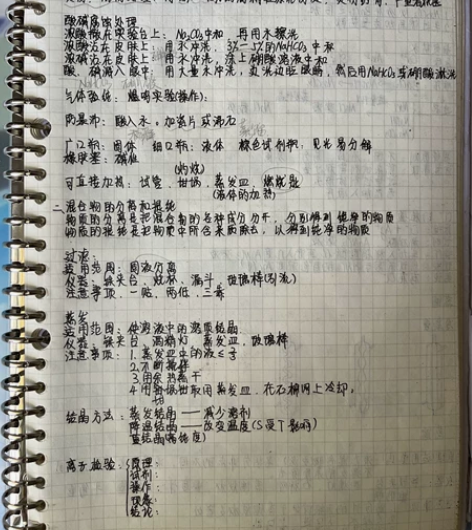 酸碱腐蚀处理
浓酸撒在实验台上：Na₂CO₃中和 再用水擦洗
浓酸沾在皮肤上：用水冲洗，3%-5%的NaHCO₃中和
浓碱沾在皮肤上：用水冲洗，涂上硼酸溶液中和
酸、碱溅入眼中：用大量水冲洗，边洗边眨眼睛，然后用NaHCO₃或硼酸淋洗
气体验纯：爆鸣实验(操作)：
防暴沸：酸入水。加瓷片或沸石
广口瓶：固体 细口瓶：液体 棕色试剂瓶：见光易分解
橡胶塞：碱性
(灼烧)
可直接加热：试管、坩埚、蒸发皿、燃烧匙
(液体的加热)
二、混合物的分离和提纯
物质的分离是把混合物的各种成分分开，分别得到纯净的物质
物质的提纯是把物质中所含杂质除去，以得到纯净的物质
过滤：
适用范围：固液分离
仪器：铁架台、烧杯、漏斗、玻璃棒(引流)
注意事项：一贴、两低、三靠
蒸发
适用范围：使溶液中的溶质结晶
仪器：铁架台、酒精灯、蒸发皿、玻璃棒
注意事项：1.蒸发皿中的液≤⅔
2.不断搅拌
3.用余热蒸干
4.用坩埚钳取用蒸发皿，在石棉网上冷却。
结晶方法：蒸发结晶——减少溶剂
降温结晶——改变温度(S受T影响)
重结晶(高纯度)
离子检验：原理：
试剂：
操作：
现象：
结论：